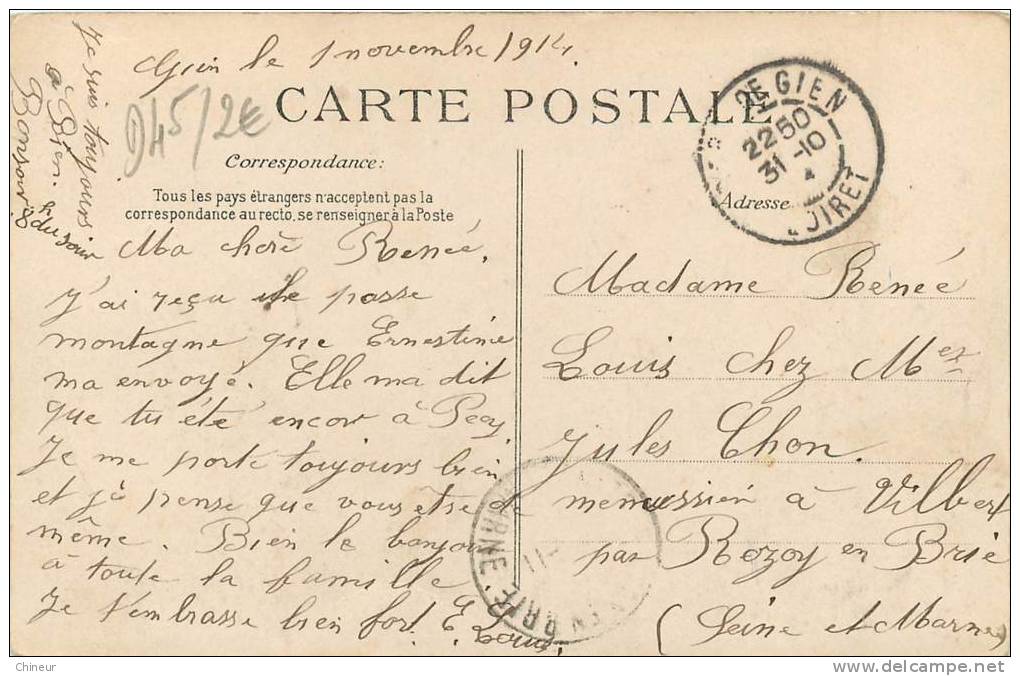 Gien le 1 novembre 1914.
CARTE POSTALE
D45/2€
Correspondance:
Tous les pays étrangers n'acceptent pas la
correspondance au recto, se renseigner à la Poste
Adresse
GIEN
22 50
31 -10
LOIRET
Je suis toujours
à Gien.
Bonsoir 8h du soir
Ma cherè Reneé,
J'ai reçu le passe
montagne que Ernestine
ma envoyé. Elle ma dit
que tu été encor à Pecy
Je me porte toujours bien
et j'ai pense que vous etes de
même. Bien le bonjour
à toute la famille.
Je t'embrasse bien fort E. Louis.
Madame Reneé
Louis chez Mer
Jules Chon.
menussien à Vilbert
par Rozoy en Brie
(Seine et Marne)
EN BRIE
11-
Chineur
delcampe.net